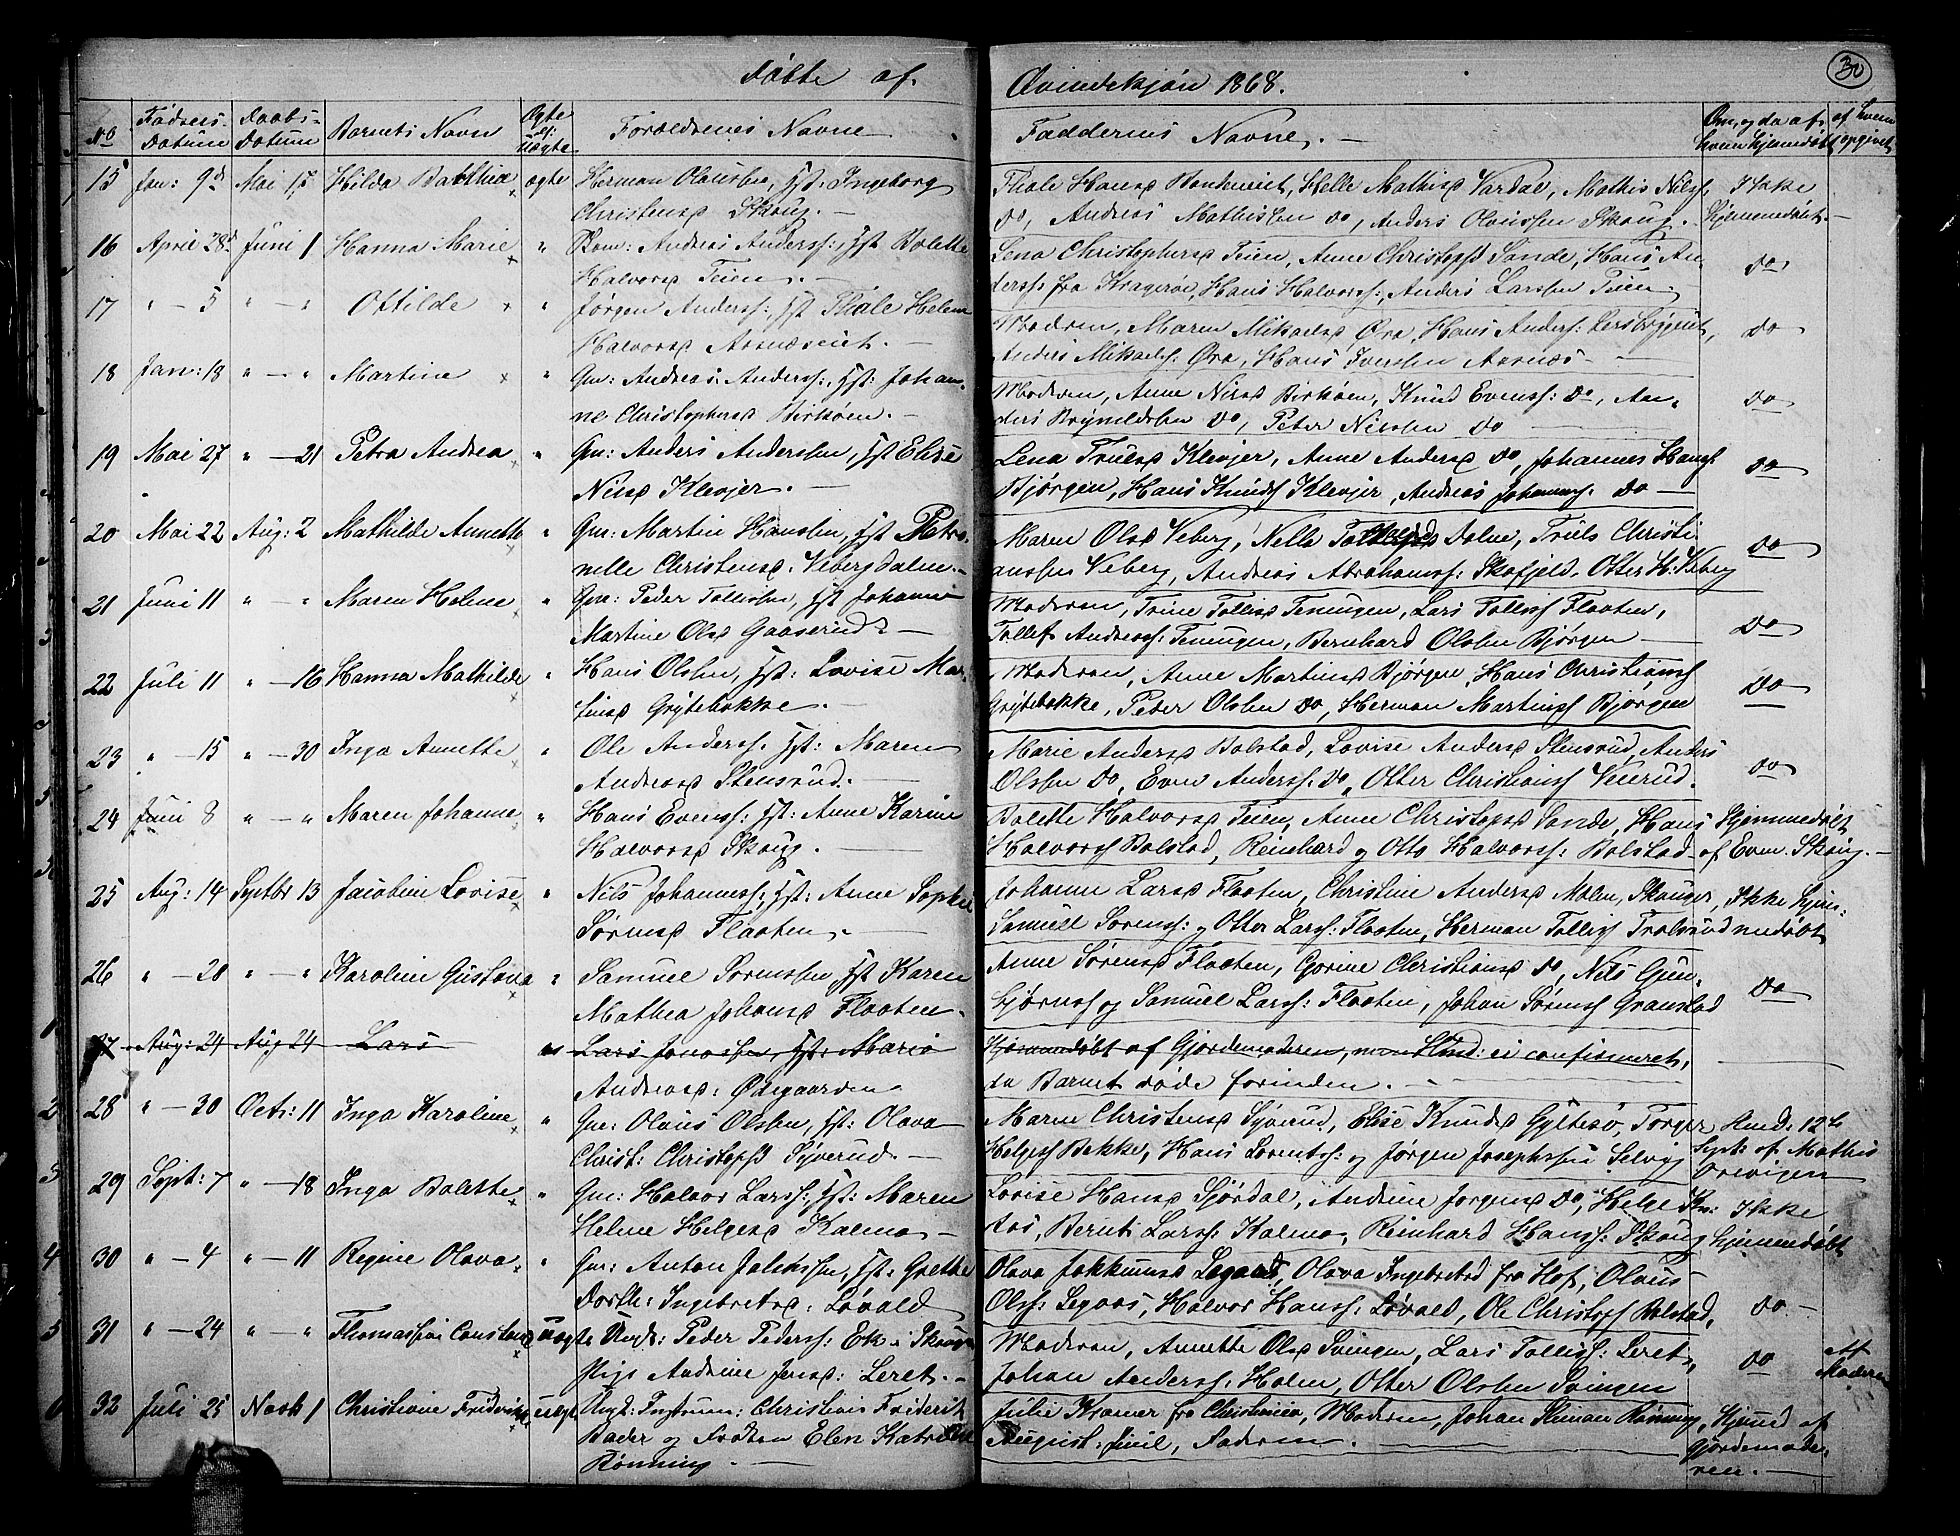 30
Døbte af
Qvindekjøn 1868.
No Fødsels-Datum Daabs-Datum Barnets Navn Ægte el: Uægte Forældrenes Navne
Faddernes Navne. — Om, og da af hvem hjemmedøbt af hvem opgivet
15 Jan: 9d Mai 17 Hilda Bathea ægte Herman Olaussen, Hst: Ingeborg
Christensd Skoug. —
Thale Hansd Bondeneiet, Helle Mathisd Vardal, Mathis Nilss. Ikke
do, Andreas Mathissen do, Anders Olaussen Skoug. hjemmedøbt. —
16 April 28d Juni 1 Hanna Marie " Skom: Andreas Anderss:, Hst Bolette
Halvorsd Teien. —
Lena Christophersd Teien, Anne Christophsd Sande, Hans An-
derss: fra Kragerøe, Hans Halvorss:, Anders Larssen Teien. do
17 " — 5 " — " Ottilde " Jørgen Anderss:, Hst Thale Helene
Halvorsd Aasnæseiet. —
Moderen, Maren Mikaelsd Øra, Hans Anderss: Lersbryggeriet,
Anders Mikaels: Øra, Hans Iverssen Aasnæs — do
18 Jan: 18 " — " Martine " Gm: Andreas Anderss:, Hst: Johan-
ne Christophersd Birkøen. —
Moderen, Anne Nilsd Birkøen, Knud Evenss: do, An-
ders Brynildssen do, Peter Nilssen do do
19 Mai 27 " — 21 Petra Andrea " Gm: Anders Anderssen, Hst Elise
Nilsd Klevjer. —
Lena Truelsd Klevjer, Anne Andersd do, Johannes Hanss
Bjørgen, Hans Knuds Klevjer, Andreas Johanness: do — do
20 Mai 22 Aug: 2 Mathilde Annette " Gm: Martin Hanssen, Hst Petro-
nelle Christensd. Vebergdalen. —
Maren Olsd Veberg, Nella Dalne, Truls Christi-
anssen Veberg, Andreas Abrahamss: Skafjeld, Otter H. Veberg do
21 Juni 11 " — " Maren Helene " Gm: Peder Tollissen, Hst Johanne
Martine Olsd Gaaserud? —
Moderen, Trine Tollisd Temugen, Lars Tolliss Flaaten,
Tollef Andreass: Temugen, Bernhard Olssen Bjørgen — do
22 Juli 11 " — 16 Hanna Mathilde " Hans Olssen, Hst: Lovise Mar-
tinsd Grytebække. —
Moderen, Anne Martinsd Bjørgen, Hans Christianss
Grytebække, Peder Olssen do, Herman Martinss Bjørgen do
23 " — 15 " — 30 Inga Annette " Ole Anderss., Hst: Maren
Andreasd Stensrud. —
Marie Andersd Bolstad, Lovise Andersd Stensrud, Anders
Olssen do, Even Anderss: do, Otter Christianss Veierud. do
24 Juni 8 " — " Maren Johanne " Hans Evenss: Hst: Anne Karine
Halvorsd Skoug. —
Bolette Halvorsd Teien, Anne Christophsd Sande, Hans Hjemmedøbt
Halvorss Bolstad, Reinhard og Otto Halvorss: Bolstad af Even Skoug. —
25 Aug: 14 Septbr 13 Jacobine Lovise " Nils Johanness:, Hst: Anne Sophie
Sørensd Flaaten. —
Johanne Larsd Flaaten, Christine Andersd Molen, Skouger, Ikke hjem-
Samuel Sørenss: og Otter Larss: Flaaten, Herman Tolliss Trolsrud medøbt
26 " — 20 " — " Karoline Gustava " Samuel Sørenssen, Hst Karen
Mathea Johansd Flaaten.
Anne Sørensd Flaaten, Gorine Christiansd do, Nils Gun-
bjørnss og Samuel Larss: Flaaten, Johan Sørenss Granstad do
27 Aug: 24 Aug 24 Lars " Lars Jonassen, Hst: Maria
Andreasd: Ødegaarden
Hjemmedøbt af Gjordemoderen, men ei confirmeret,
da Barnet døde forinden. —
28 " — 30 Octr: 11 Inga Karoline " Gm: Olaus Olssen, Hst: Olava
Christ: Christophsd Syverud. —
Maren Christensd Syverud, Elise Knudsd Gyltesø, Torger
Helgess Bakke, Hans Lorentss: og Jørgen Josephssen Selvig
Sept: af Mathis
29 Sept: 7 " — 18 Inga Bolette " Gm: Halvor Larss:, Hst: Maren
Helene Helgesd Kalmo —
Lovise Hansd Fjordal, Andrine Jørgensd do, Helge Ikke
Bernt Larss: Kalmo, Reinhard Hanss: Skoug hjemmedøbt
30 " — 4 " — 11 Regine Olava " Gm: Anton Jakobssen, Hst: Grethe
Dorth: Ingebretsd: Løvald
Olava Jokkumsd Legaas, Olava Ingebretsd fra Hof, Olaus
Olss: Legaas, Halvor Hanss: Løvald, Ole Christophss Bolstad. do —
31 " — 24 " — " Thomassine Constanse Uægte Ungk: Peder Pederss: Ek i Skouger
Pige Andrine Jensd: Leret. —
Moderen, Annette Olsd Svingen, Lars Tolliss: Leret,
Johan Anderss: Holm, Otter Olssen Svingen do Af Moderen
32 Juli 25 Novbr 1 Christiane Fridrikke uægte Ungk: Instrum: Christian Friderik
Bader og Frøken Elen Katrine
Rønning. —
Julie Kramer fra Christiania, Moderen, Johan Rønning, Hjemd af
August Juul, Faderen. — Gjordemode-
ren. —